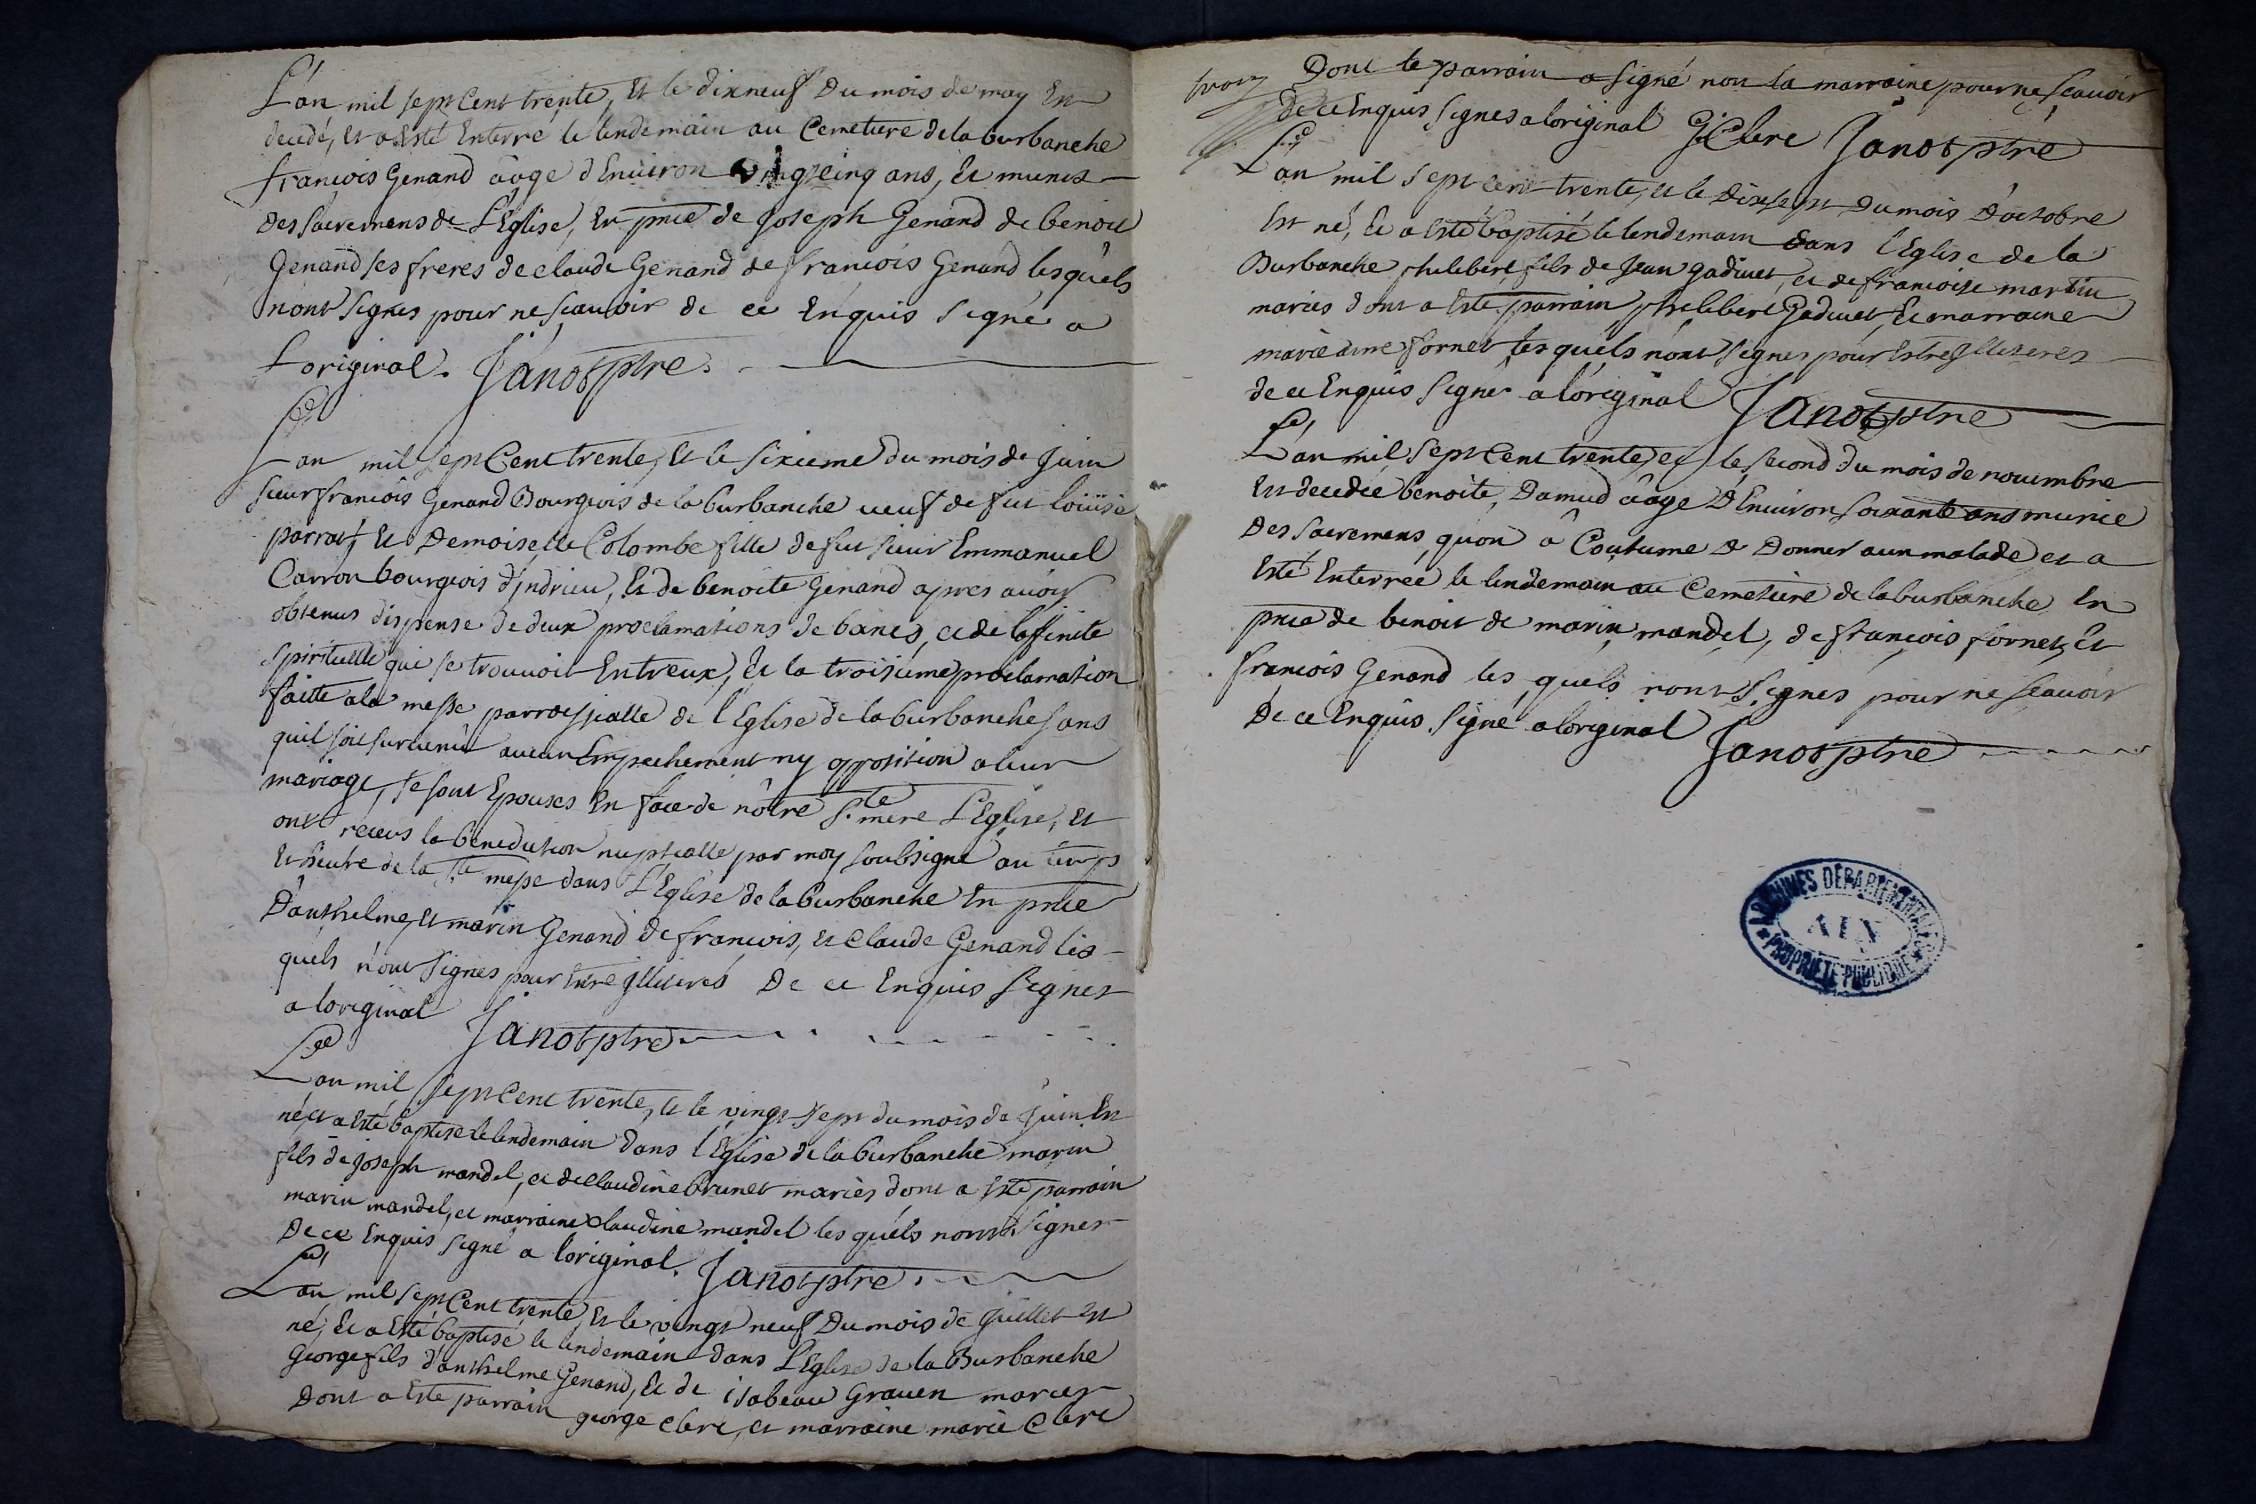 L'an mil sept Cent trente, Et le dixneuf Du mois de may Est
decedé, et a Esté Enterré le lendemain au Cemetiere de la burbanche
francois Genand âage d'Enuiron vingtcinq ans, Et munis
des sacremens de L'Eglise, En pnce de Joseph Genand de benoit
Genand ses freres de claude Genand de francois Genand lesquels
n'ont signes pour ne scauoir de ce Enquis signé a
L'original. Janot ptre.
L'an mil sept Cent trente, Et le sixieme du mois de Juin
sieur francois Genand Bourgeois de la burbanche ueuf de fut loüise
parrat, Et Demoiselle Colombe fille de fut sieur Emmanuel
Carron bourgeois d'jndrieu, Et de benoite Genand apres auoir
obtenus dispense de deux proclamations de bancs, et de l'affinité
spirituelle qui se trouuoit Entreux, Et la troisieme proclamation
faitte a la messe parroissialle de l'Eglise de la burbanche sans
quil soit suruenù aucun Empechement ny opposition a leur
mariage, se sont Epouses En face de nôtre Ste mere L'Eglise, Et
ont receus la benediction nuptialle par moy soubsigné au temps
Et heure de la Ste messe dans L'Eglise de la burbanche En pnce
D'anthelme, et marin Genand de francois, et claude Genand les
quels n'ont signes pour Estre jlliterés De ce Enquis signes
a loriginal Janot ptre
L'an mil sept Cent trente, Et le vingt sept du mois de Juin Est
né, et a Esté baptisé le lendemain dans l'Eglise de la burbanche marin
fils de joseph mandel, et de claudine brunet mariés dont a Esté parrain
marin mandel, et marraine claudine mandel les quels nont signes
De ce Enquis signé a l'original. Janot ptre.
L'an mil sept Cent trente, Et le vingt neuf Du mois de Juillet Est
né, Et a Esté baptisé le lendemain dans L'Eglise de la Burbanche
George fils d'anthelme Genand, Et de isabeau Grauen maries
Dont a Esté parrain george clerc, et marraine marie Clerc
Dont le parrain a signé non la marraine pour ne scauoir
de ce Enquis signes a loriginal G: Clerc Janot ptre
L'an mil sept cent trente, et le dixsept Du mois D'octobre
Est né, Et a Esté baptisé le lendemain dans l'Eglise de la
Burbanche philebert fils de Jean gadiuet, et de francoise martin
maries dont a Esté parrain philebert Gadiuet, Et marraine
marie anne fornet les quels n'ont signes pour Estre jlliteres
de ce Enquis signes a l'original Janot ptre
L'an mil sept Cent trente, et le second du mois de nouembre
Est decedée benoite, Damud âage D'Enuiron soixante ans munie
Des sacremens, qu'on â Coutume de Donner aun malade et a
Esté Enterrée le lendemain au Cemetiere de la burbanche En
pnce de benoit de marin mandel, de francois fornet, Et
francois Genand les quels n'ont signes pour ne scauoir
De ce Enquis signé a loriginal Janot ptre
ARCHIVES DÉPARTEMENTALES
AIN
PROPRIÉTÉ PUBLIQUE